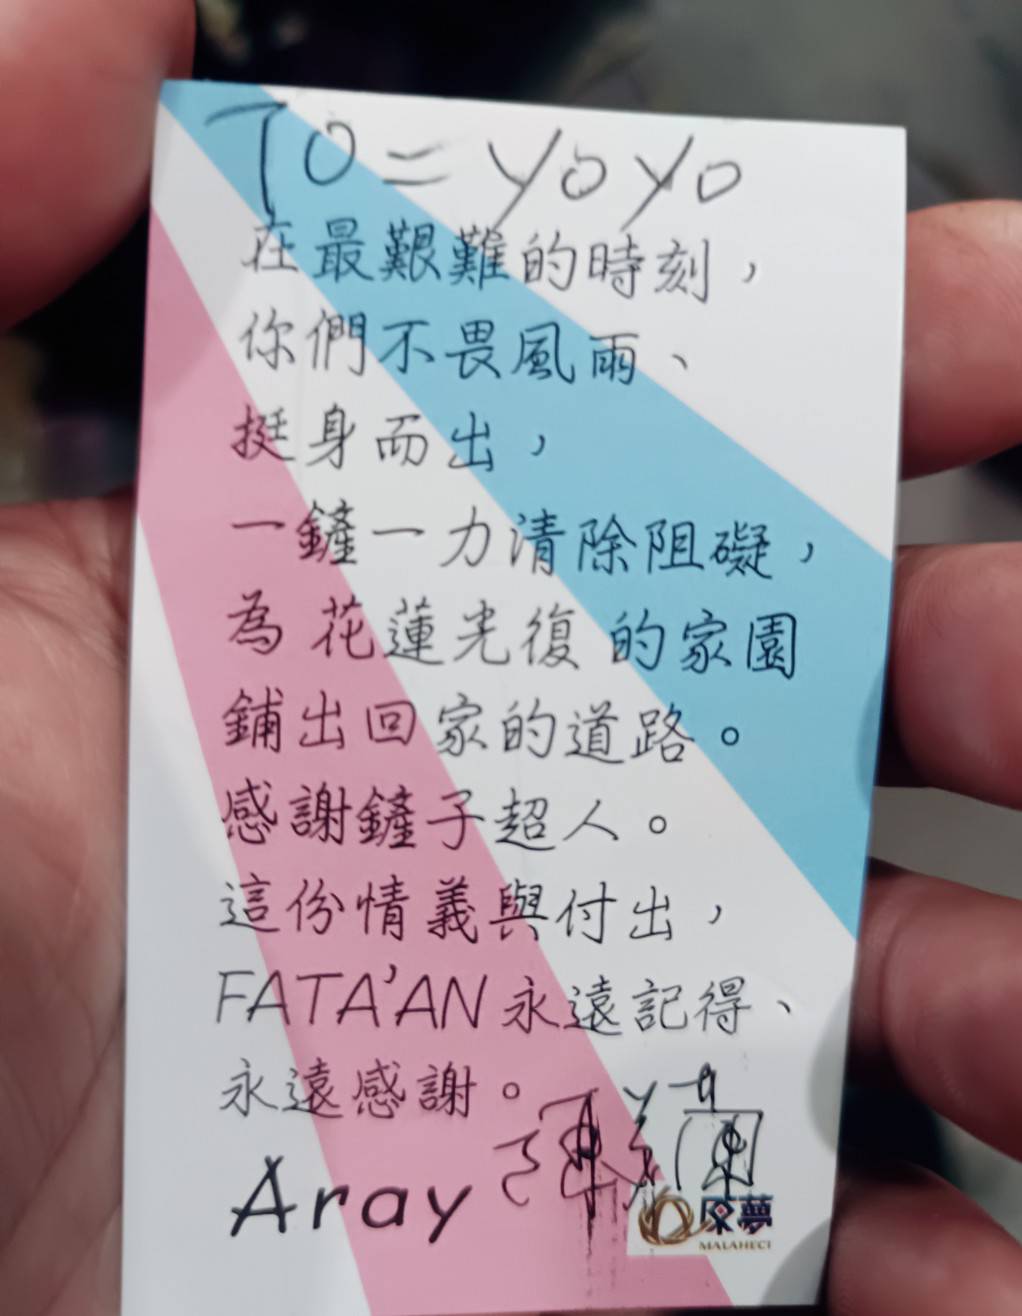 To = yoyo
在最艱難的時刻，
你們不畏風雨、
挺身而出，
一鏟一力清除阻礙，
為花蓮光復的家園
鋪出回家的道路。
感謝鏟子超人。
這份情義與付出，
FATA'AN 永遠記得、
永遠感謝。
Aray
原夢
MALAHECI